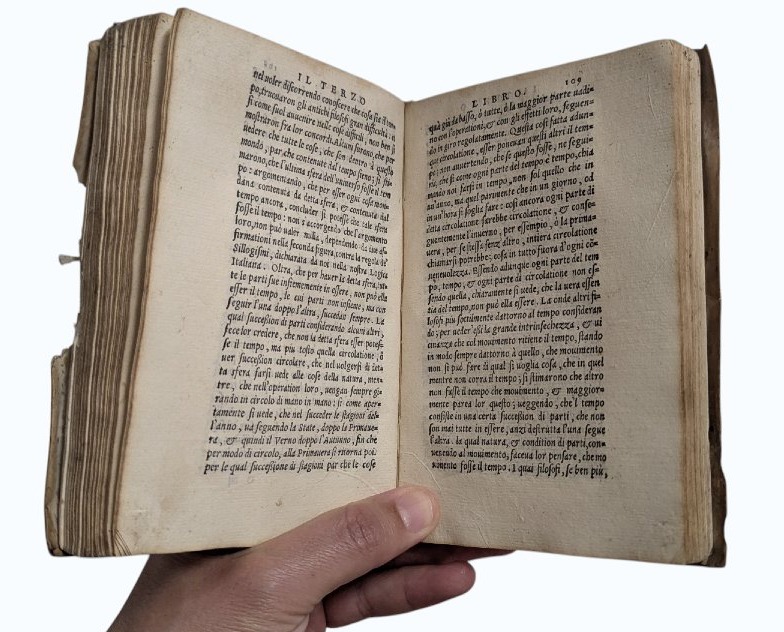 IL TERZO
nel uoler discorrendo conoscere che cosa sia il tem-
po, trouaron gli antichi filosofi gran difficultà: &
si come suol auuenire nelle cose difficili, non ben si
mostraron fra lor concordi. Alcuni furono, che per
uedere che tutte le cose, che son dentro à questo
mondo, par che contenute dal tempo sieno; si sti-
marono, che l'ultima sfera dell'uniuerso fosse il tem
po: argomentando, che per esser ogni cosa mon-
dana contenuta da detta sfera, & contenuta dal
tempo ancora, concluder si potesse che tale sfera
fosse il tempo: non s'accorgendo che l'argomento
loro, non può ualer nulla, dependendo da due af-
firmationi nella seconda figura, contra la regola de'
Sillogismi, dichiarata da noi nella nostra Logica
Italiana. Oltra, che per hauer la detta sfera, tut-
te le parti sue insiememente in essere, non può ella
esser il tempo, le cui parti non insieme, ma con
seguir l'una doppo l'altra, succedan sempre. La
qual succession di parti considerando alcuni altri,
fece lor credere, che non la detta sfera esser potes-
se il tempo, ma più tosto quella circolatione, ò
uer successìon circolare, che nel uolgersi di det-
ta sfera farsi uede alle cose della natura, men-
tre, che nell'operation loro, uengan sempre gi-
rando in circolo di mano in mano: si come aper-
tamente si uede, che nel succeder le stagioni del-
l'anno, ua seguendo la State, doppo la Primaue-
ra, & quindi il Verno doppo l'Autunno, fin che
per modo di circolo, alla Primauera si ritorna poi.
per le qual successione di stagioni par che le cose
LIBRO. 109
quà giù da basso, ò tutte, ò la maggior parte uadi-
no con l'operatione, & con gli effetti loro, seguen-
do in giro regolatamente. Questa così fatta adun-
que circolatione, esser poneuan quelli altri il tem-
po: non auuertendo, che se questo fosse, ne segui-
ria, che si come ogni parte del tempo è tempo, chia
mando noi farsi in tempo, non sol quello che in
un'anno, ma quel parimente che in un giorno, od
in un'hora si soglia fare: così ancora ogni parte di
detta circolatione sarebbe circolatione, & conse-
guentemente l'inuerno, per essempio, ò la prima-
uera, per se stessa senz'altro, intiera circolatione
chiamar si potrebbe; cosa in tutto fuora d'ogni cō
ueneuolezza. Essendo adunque ogni parte del tem
po, tempo, & ogni parte di circolatione non es-
sendo quella, chiaramente si uede, che la uera essen
tia del tempo, non può ella essere. La onde altri fi-
losofi più sottilmente dattorno al tempo consideran
do; per ueder'essi la grande intrinsechezza, & ui
cinanza che col mouimento ritiene il tempo, stando
in modo sempre dattorno à quello, che mouimento
non si può fare di qual si uoglia cosa, che in quel
mentre non corra il tempo; si stimarono che altro
non fusse il tempo che mouimento, & maggior-
mente parea lor questo; ueggendo, che'l tempo
consiste in una certa succession di parti, che non
son mai tutte in essere, anzi destrutta l'una segue
l'altra. la qual natura, & condition di parti, con-
uenendo al mouimento, faceua lor pensare, che mo
uimento fosse il tempo. I quai filosofi, se ben più,